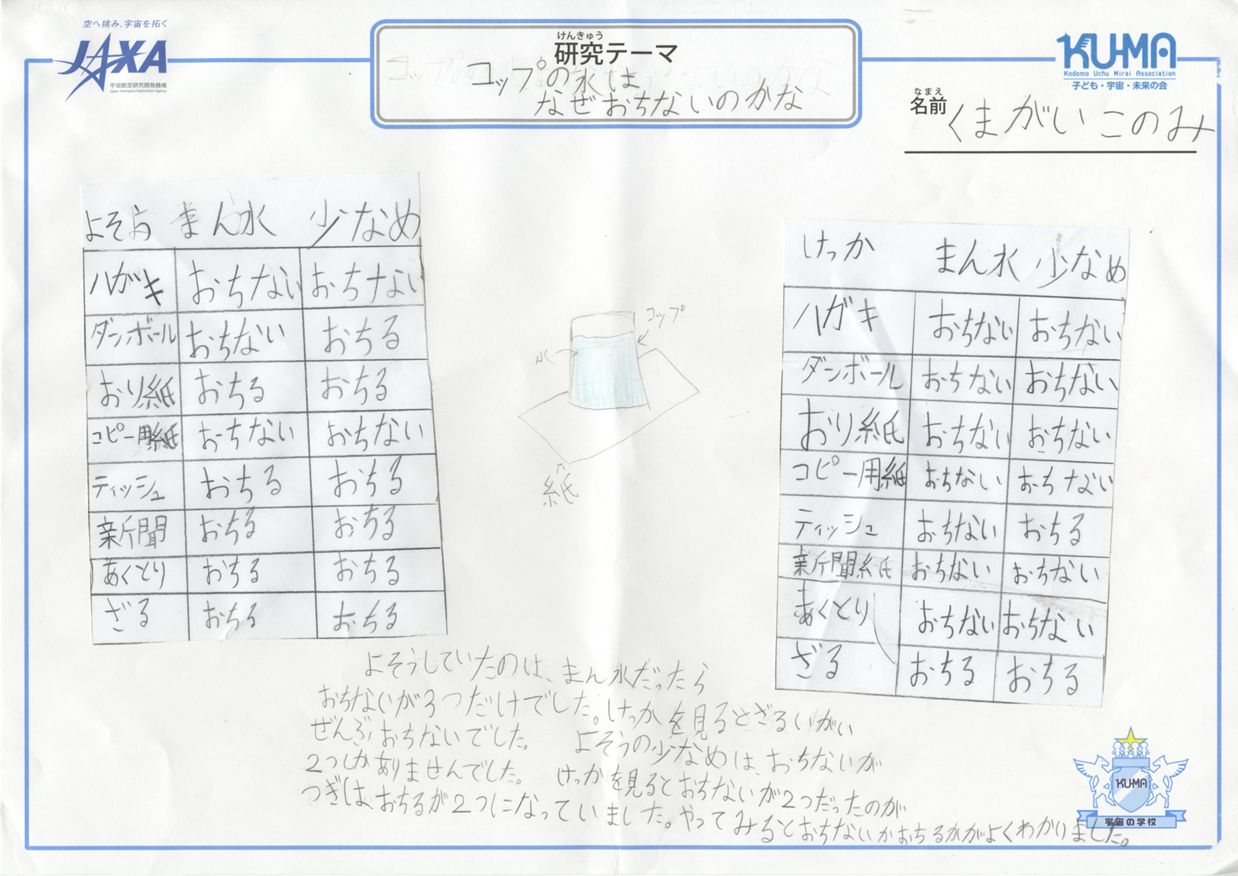 空へ挑み、宇宙を拓く
JAXA
宇宙航空研究開発機構
Japan Aerospace Exploration Agency
けんきゅう
研究テーマ
コップの水は
なぜおちないのかな
KU-MA
Kodomo Uchu Mirai Association
子ども・宇宙・未来の会
なまえ
名前 くまがい このみ
よそう まん水 少なめ
ハガキ おちない おちない
ダンボール おちない おちる
おり紙 おちる おちる
コピー用紙 おちない おちない
ティッシュ おちる おちる
新聞 おちる おちる
あくとり おちる おちる
ざる おちる おちる
コップ
水
紙
けっか まん水 少なめ
ハガキ おちない おちない
ダンボール おちない おちない
おり紙 おちない おちない
コピー用紙 おちない おちない
ティッシュ おちない おちる
新聞紙 おちない おちない
あくとり おちない おちない
ざる おちる おちる
よそうしていたのは、まん水だったら
おちないが3つだけでした。けっかを見るとざるいがい
ぜんぶおちないでした。 よそうの少なめは、おちないが
2つしかありませんでした。 けっかを見るとおちないが2つだったのが
つぎは、おちるが2つになっていました。やってみるとおちないかおちるかがよくわかりました。
KU-MA
宇宙の学校